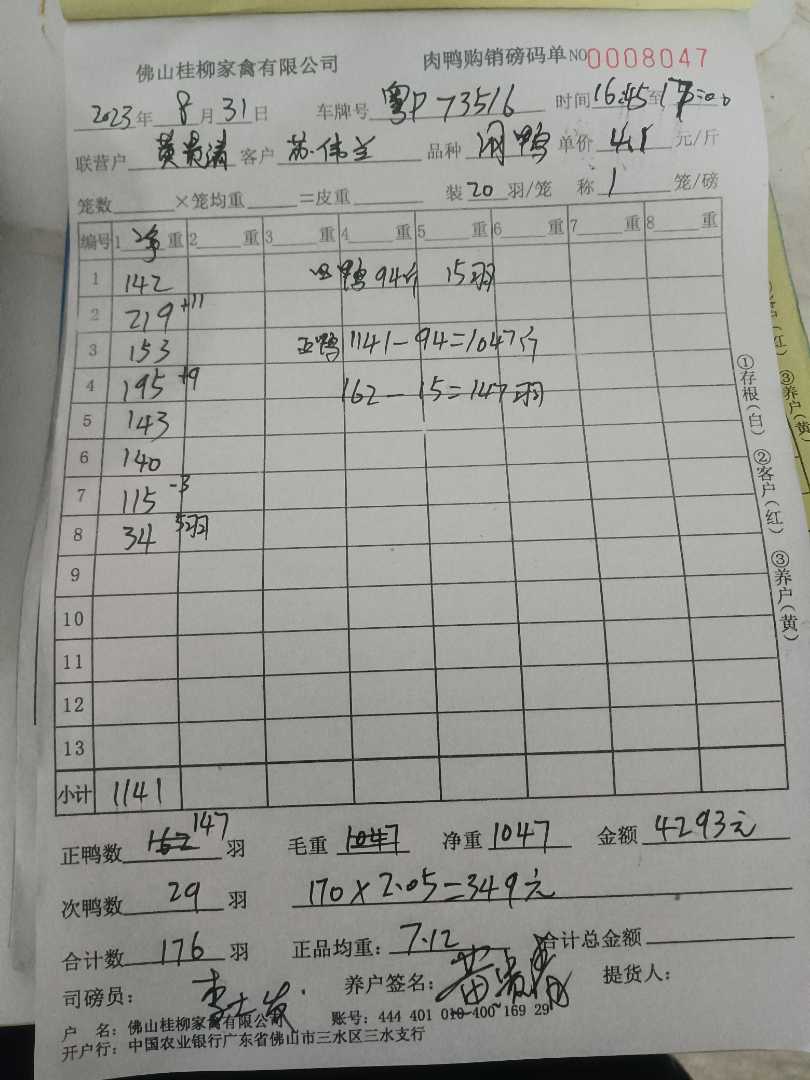 佛山桂柳家禽有限公司 肉鸭购销磅码单 NO 0008047
2023年 8月 31日 车牌号 粤P 73516 时间 16:45 至 17:00
联营户 黄贵清 客户 苏伟兰 品种 鸭 单价 4.1 元/斤
笼数 ×笼均重 =皮重 装 20 羽/笼 称 1 笼/磅
编号 1 净 重 2 重 3 重 4 重 5 重 6 重 7 重 8 重
1 142 鸭 94斤 15羽
2 219 +11
3 153 正鸭 1141-94=1047斤
4 195 +9 162-15=147羽
5 143
6 140
7 115 -3
8 34 5羽
9
10
11
12
13
小计 1141
正鸭数 162 147 羽 毛重 1047 净重 1047 金额 4293元
次鸭数 29 羽 170×2.05=349元
合计数 176 羽 正品均重: 7.12 合计总金额
司磅员: 养户签名: 黄贵清 提货人:
户 名: 佛山桂柳家禽有限公司 账号: 444 401 010 400 169 29
开户行: 中国农业银行广东省佛山市三水区三水支行
①存根(白) ②客户(红) ③养户(黄)
③养户(黄)